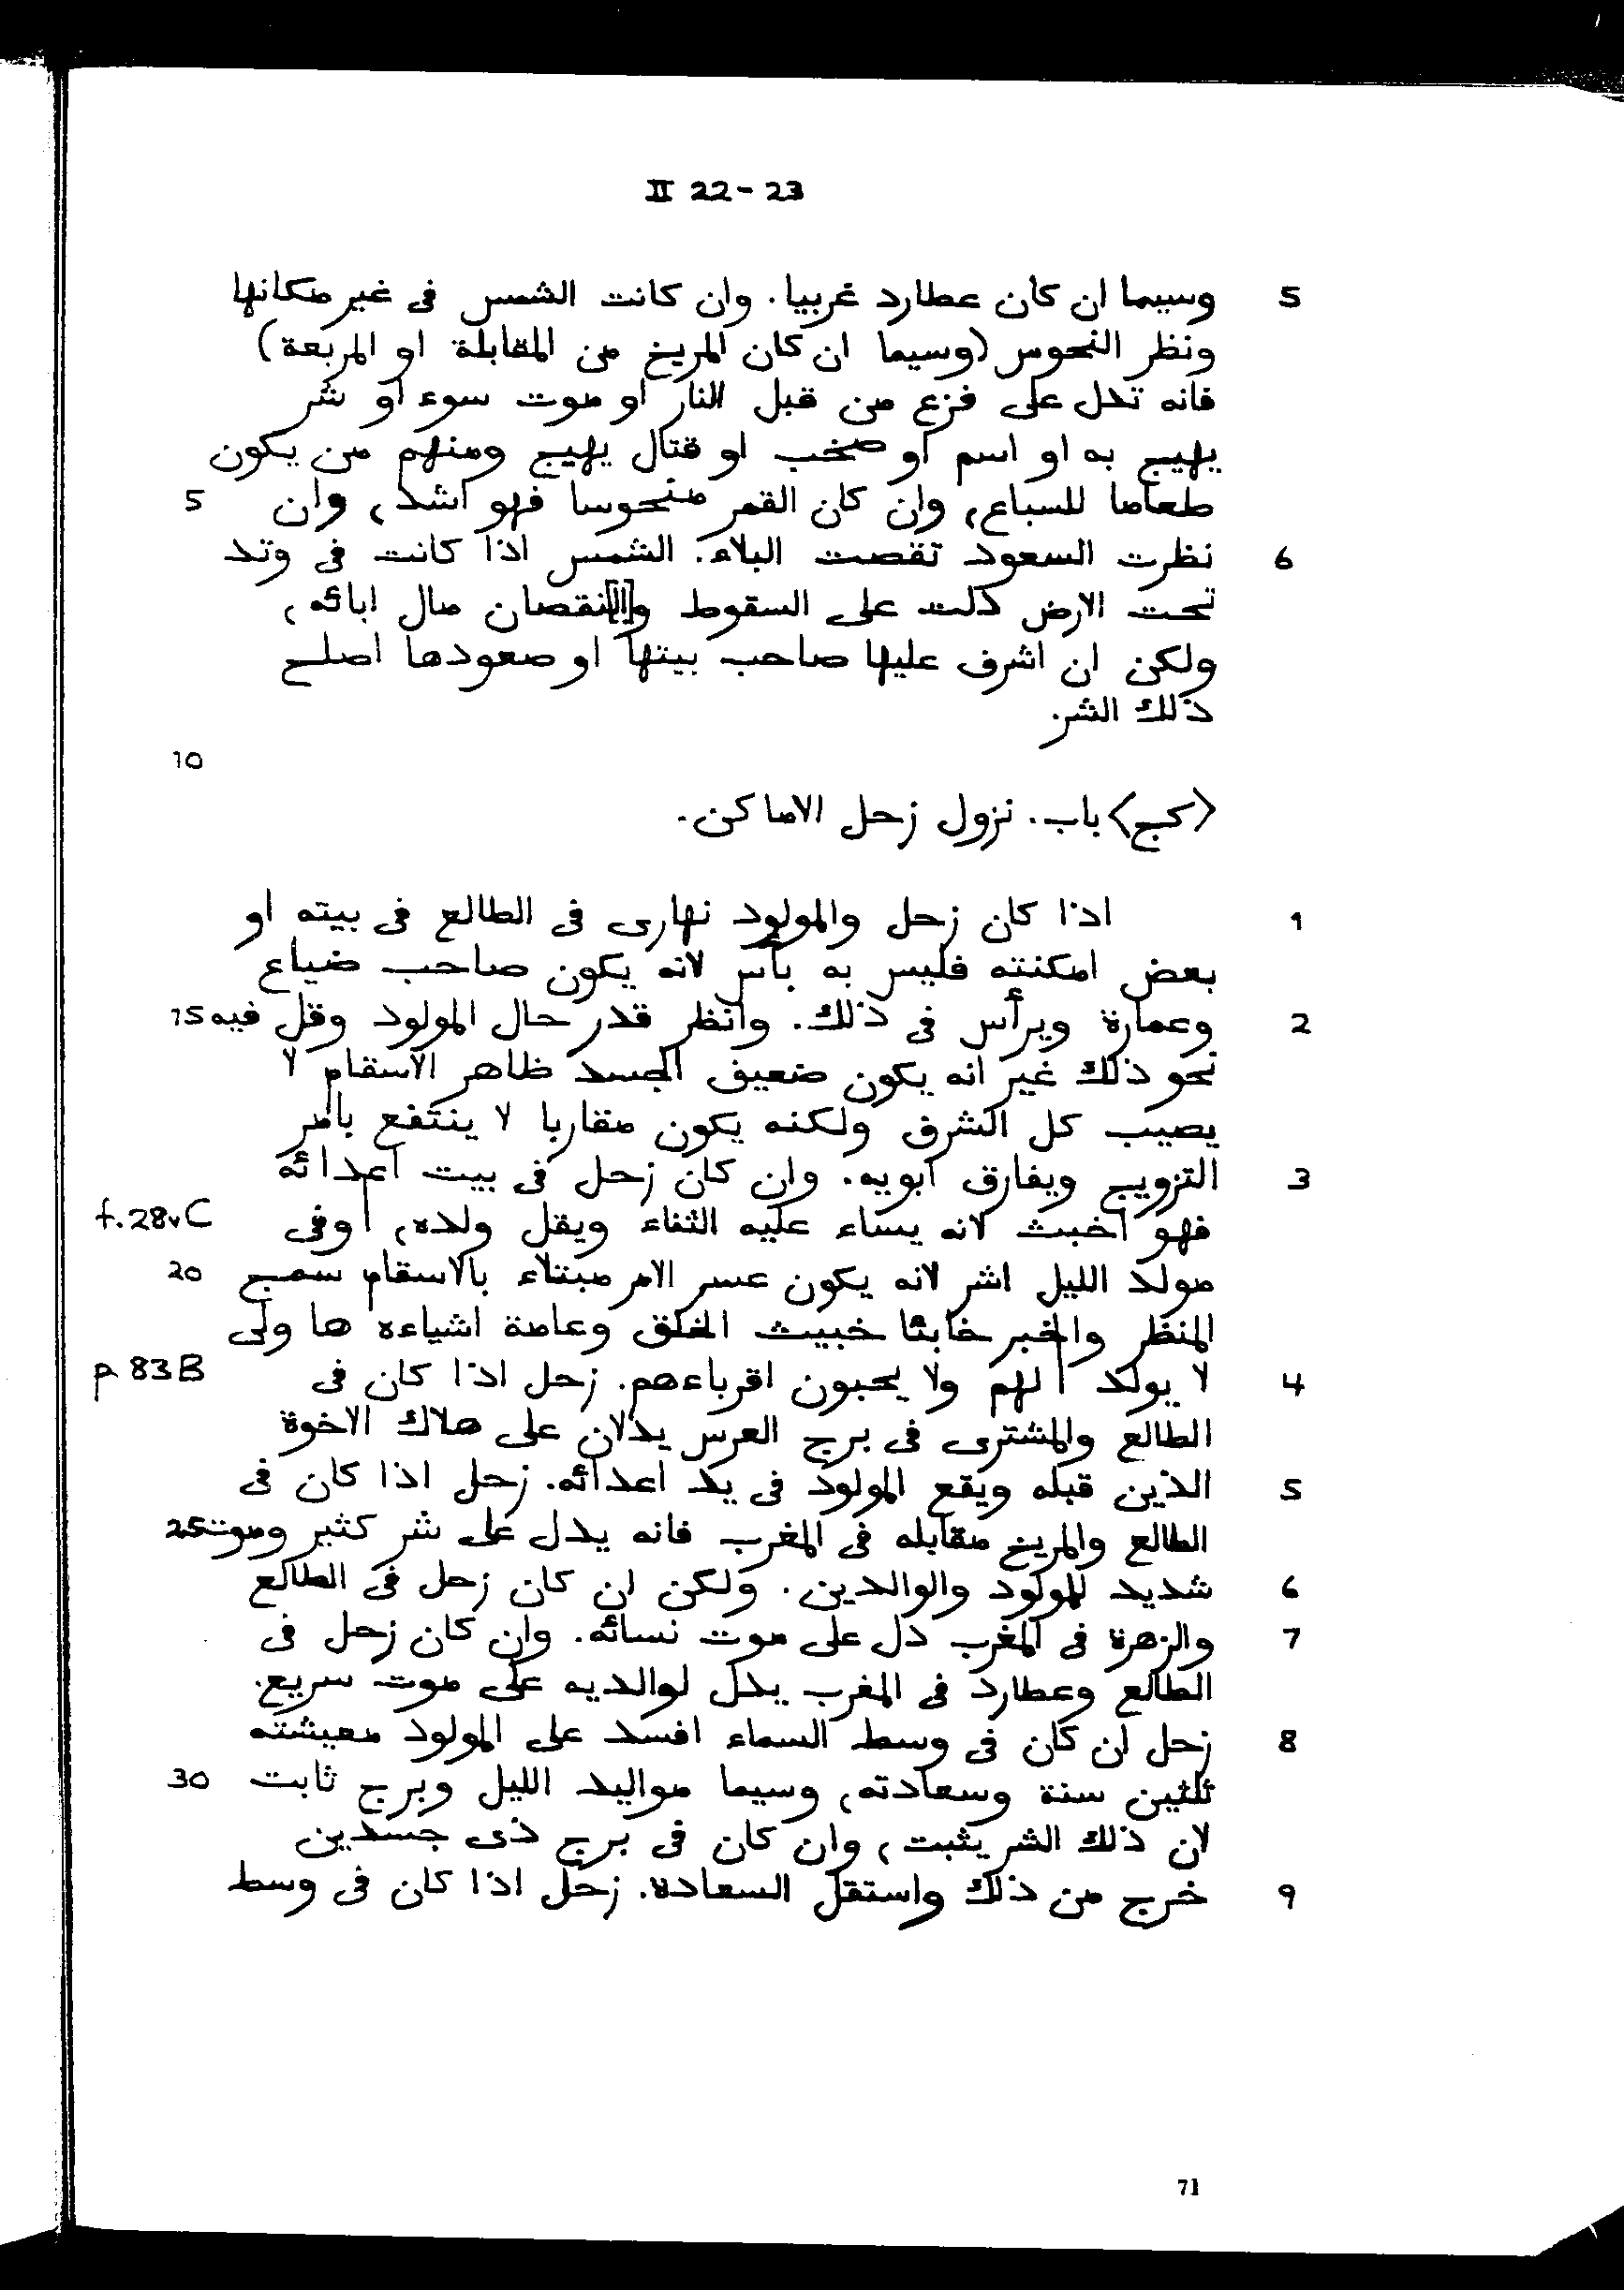 II 22-23
5 وسيما ان كان عطارد غربيا. وان كانت الشمس فى غير مكانها
ونظر النحوس (وسيما ان كان المريخ من المقابلة او المربعة)
فانه تدل على فزع من قبل النار او موت سوء او شر
يهيج به او اسم او صخب او قتال يهيج ومنهم من يكون
طعاما للسباع، وان كان القمر منحوسا فهو اشد، وان 5
6 نظرت السعود نقصت البلاء. الشمس اذا كانت فى وتد
تحت الارض دلت على السقوط و[ال]نقصان مال ابائه،
ولكن ان اشرف عليها صاحب بيتها او صعودها اصلح
ذلك الشر.
10
<كج> باب. نزول زحل الاماكن.
1 اذا كان زحل والمولود نهارى فى الطالع فى بيته او
بعض امكنته فليس به بأس لانه يكون صاحب ضياع
2 وعمارة ويرأس فى ذلك. وانظر قدر حال المولود وقل فيه 15
نحو ذلك غير انه يكون ضعيف الجسد ظاهر الاسقام لا
يصيب كل الشرف ولكنه يكون مقاربا لا ينتفع بامر
3 التزويج ويفارق ابويه. وان كان زحل فى بيت اعدائه
فهو اخبث لانه يساء عليه الثناء ويقل ولده، | وفى f.28v C
مولد الليل اشر لانه يكون عسر الامر مبتلاء بالاسقام سمج 20
المنظر والخبر خابثا خبيث الخلق وعامة اشياءه ها ولى
4 لا يولد | لهم ولا يحبون اقرباءهم. زحل اذا كان فى p 83 B
الطالع والمشترى فى برج العرس يدلان على هلاك الاخوة
5 الذين قبله ويقع المولود فى يد اعدائه. زحل اذا كان فى
الطالع والمريخ مقابله فى المغرب فانه يدل على شر كثير وموت 25
6 شديد للمولود والوالدين. ولكن ان كان زحل فى الطالع
7 والزهرة فى المغرب دل على موت نسائه. وان كان زحل فى
الطالع وعطارد فى المغرب يدل لوالديه على موت سريع.
8 زحل ان كان فى وسط السماء افسد على المولود معيشته
ثلثين سنة وسعادته، وسيما مواليد الليل وبرج ثابت 30
لان ذلك الشر يثبت، وان كان فى برج ذى جسدين
9 خرج من ذلك واستقل السعادة. زحل اذا كان فى وسط
71